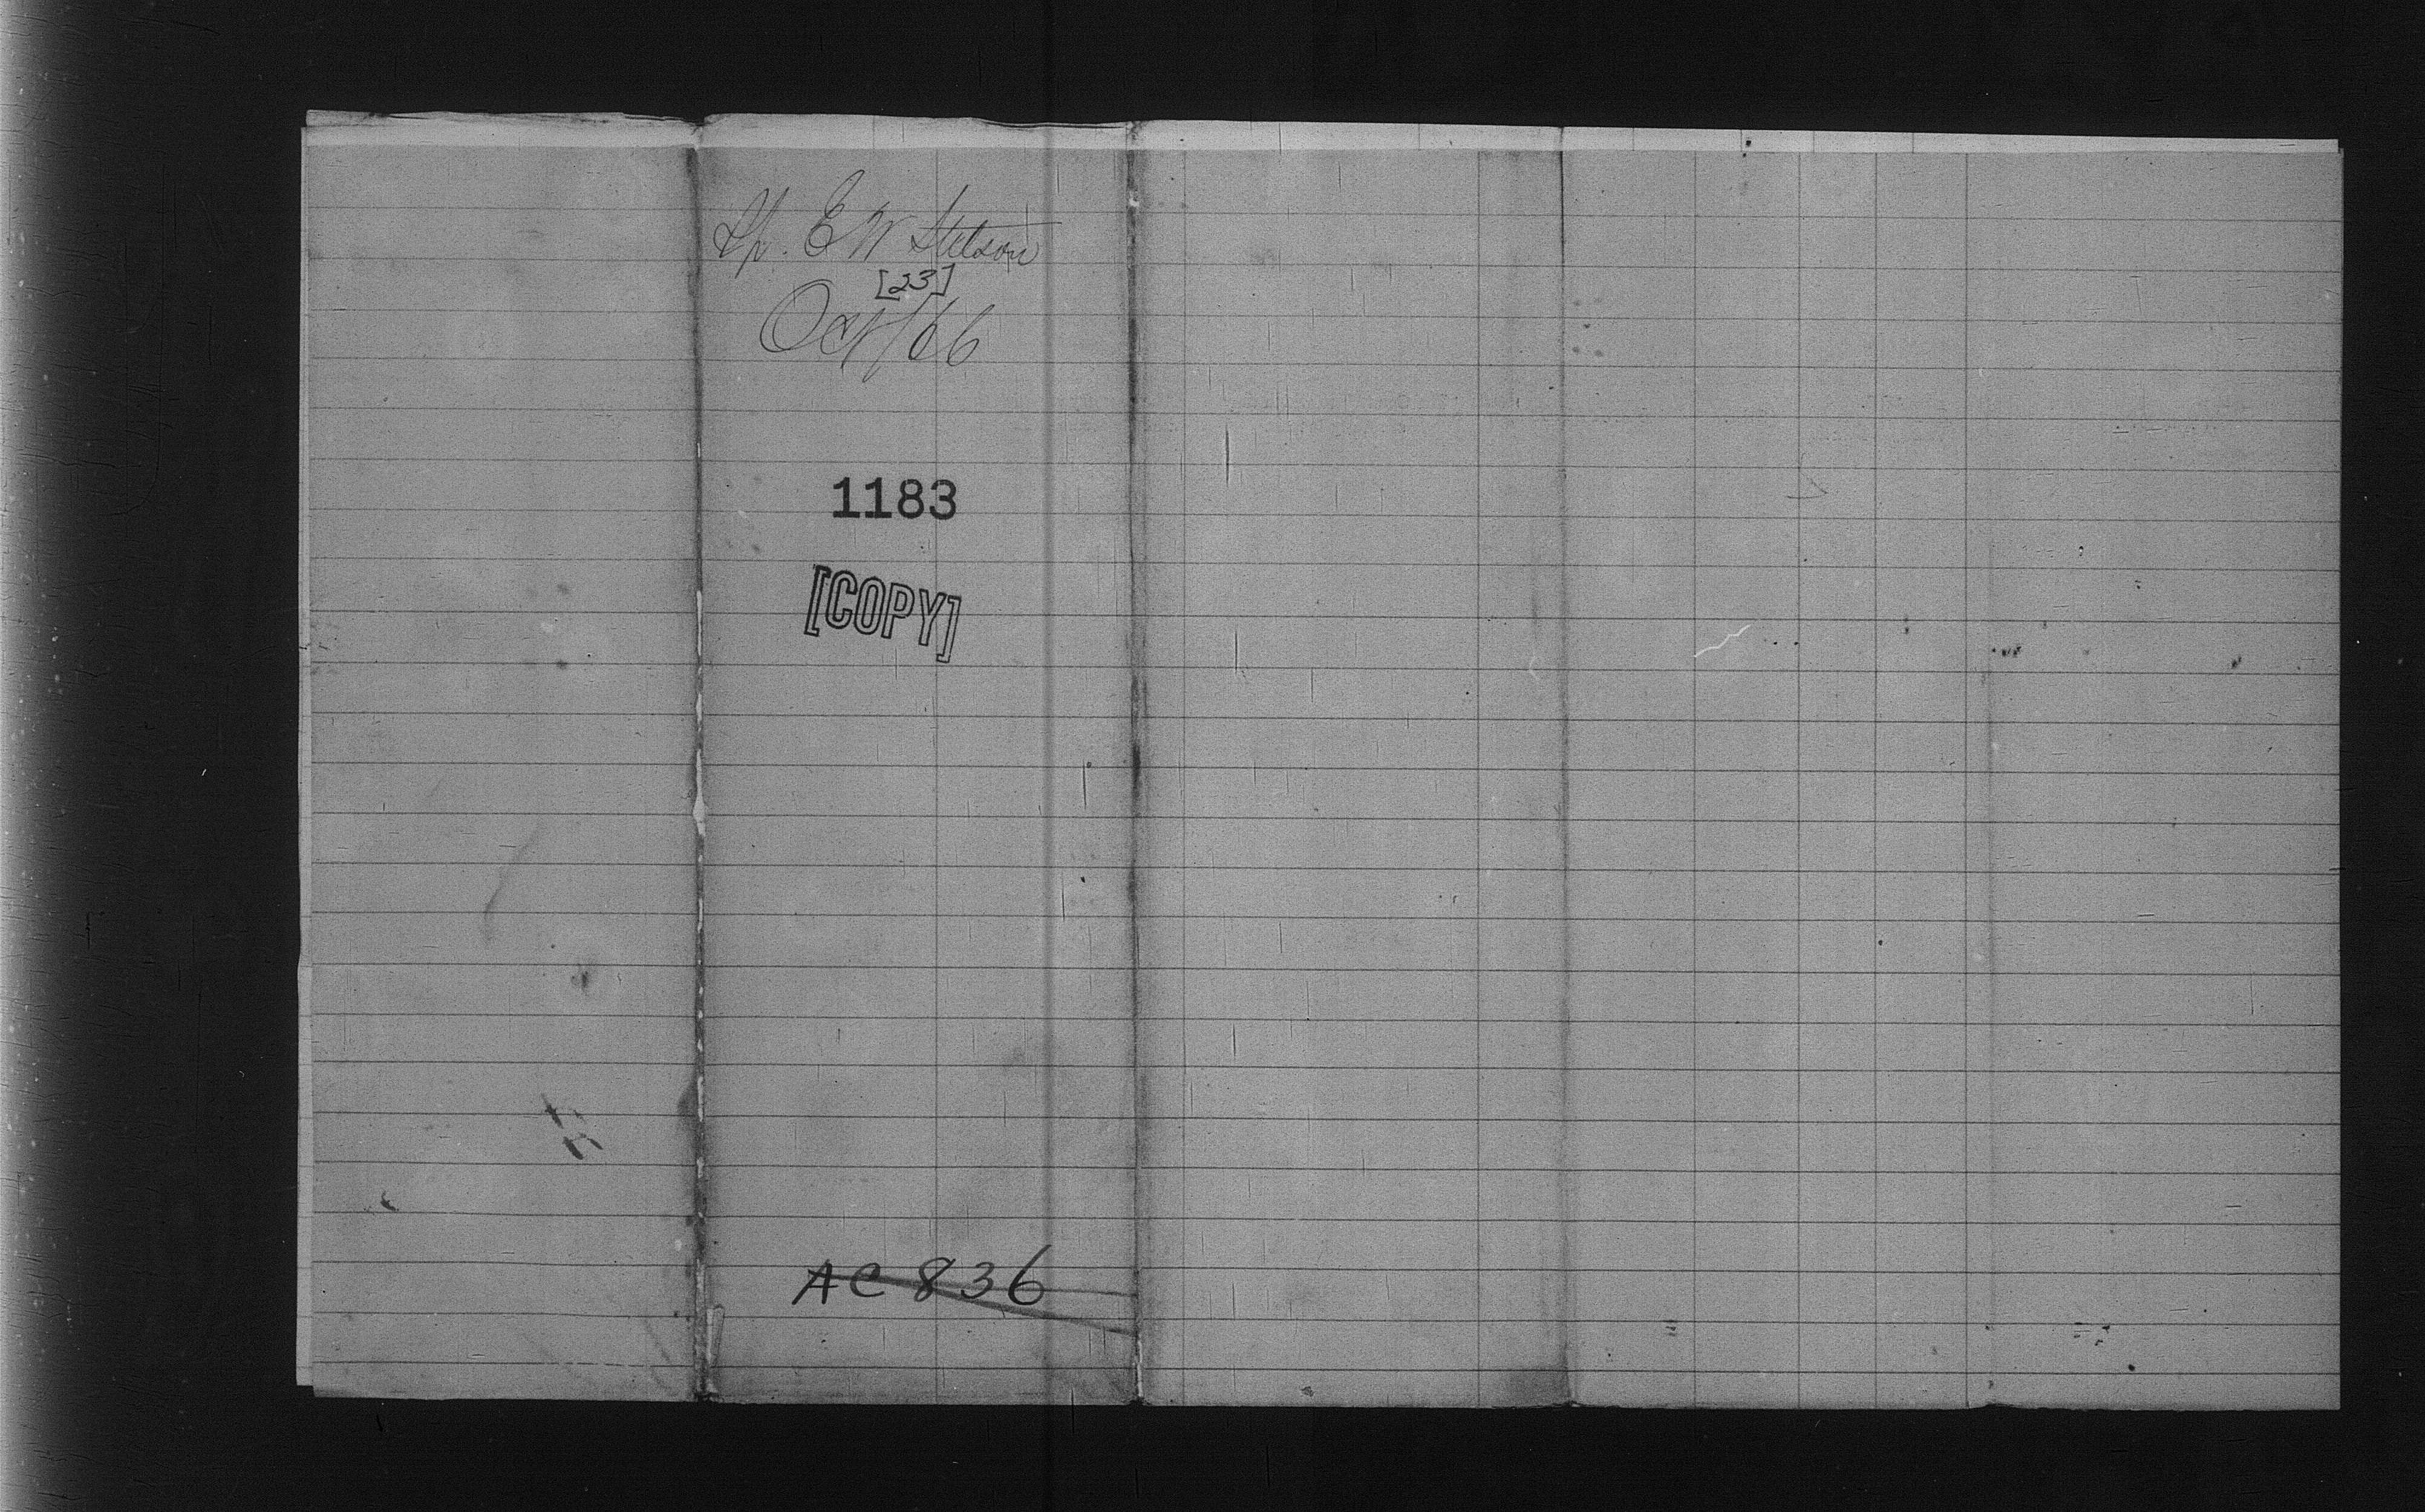 Sp. E W Stetson
[23]
Oct/66
1183
[COPY]
AC 836